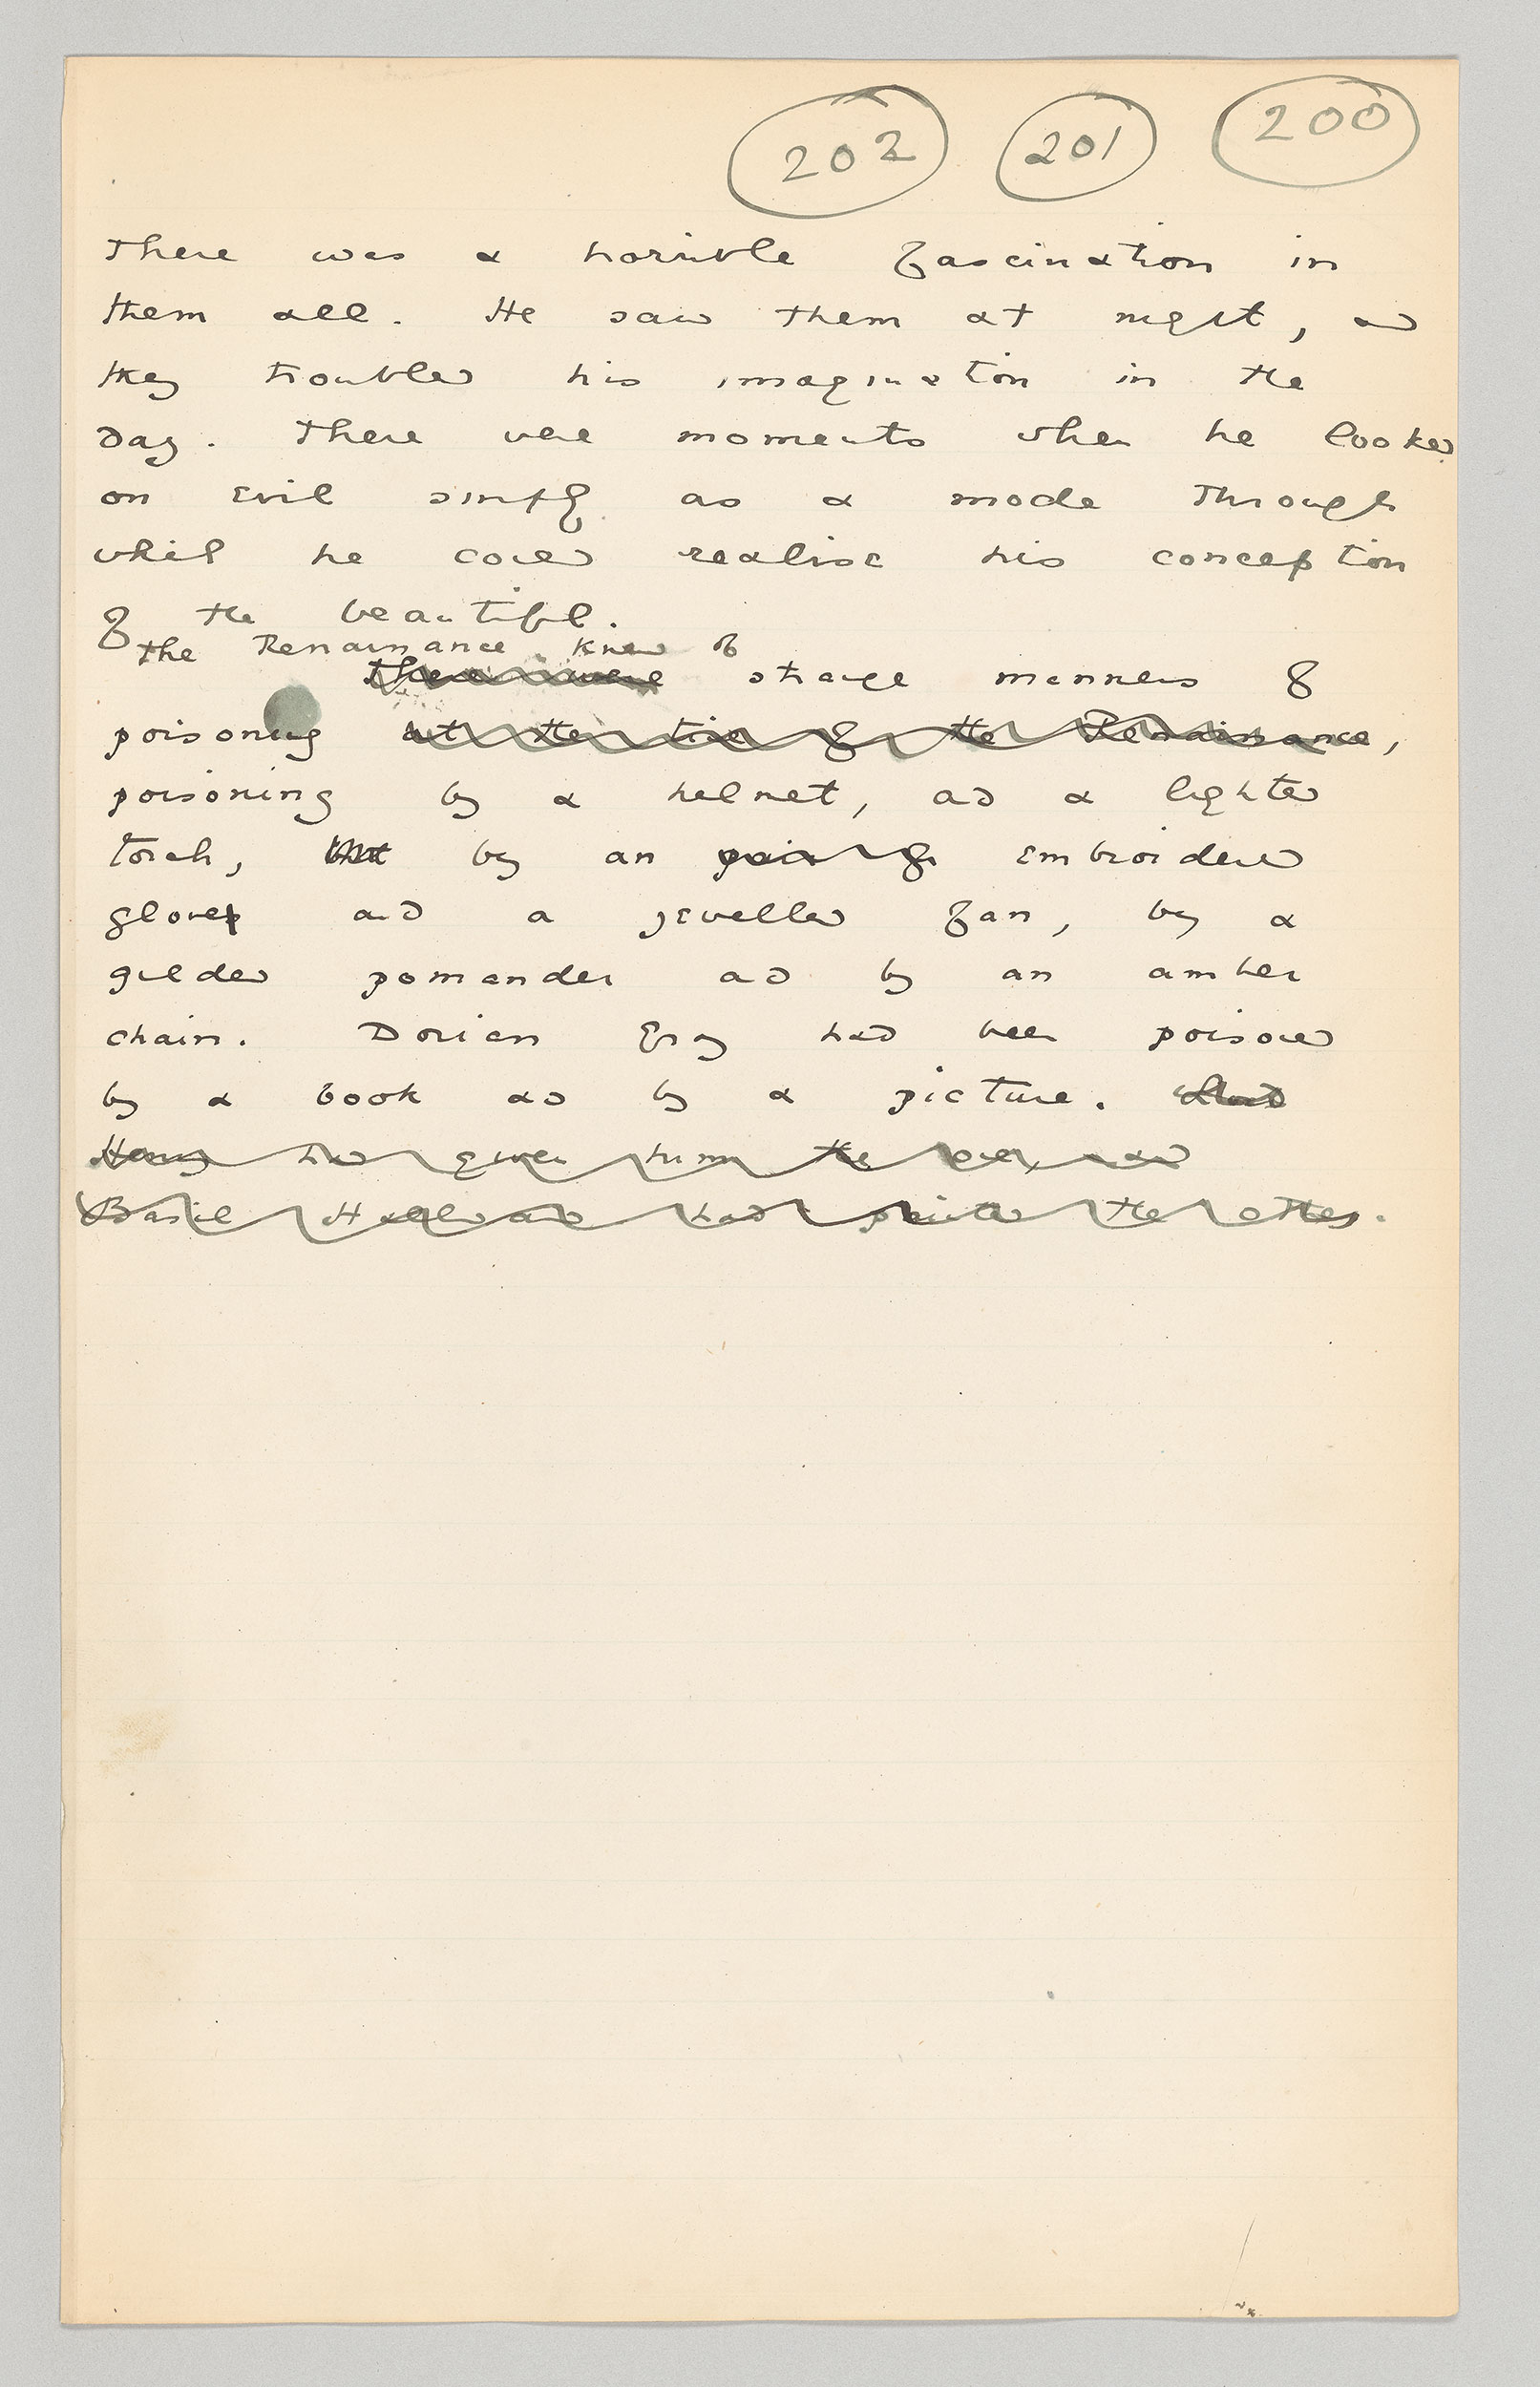 202 201 200
There was a horrible fascination in
them all. He saw them at night, and
they troubled his imagination in the
day. There were moments when he looked
on Evil simply as a mode through
which he could realise his conception
of the beautiful.
The Renaissance knew of
there were strange manners of
poisoning at the time of the Renaissance,
poisoning by a helmet, and a lighted
torch, but by an pair of embroidered
glove and a jewelled fan, by a
gilded pomander and by an amber
chain. Dorian Gray had been poisoned
by a book and by a picture.
Harry had given him the one, and
Basil Hallward had painted the other.